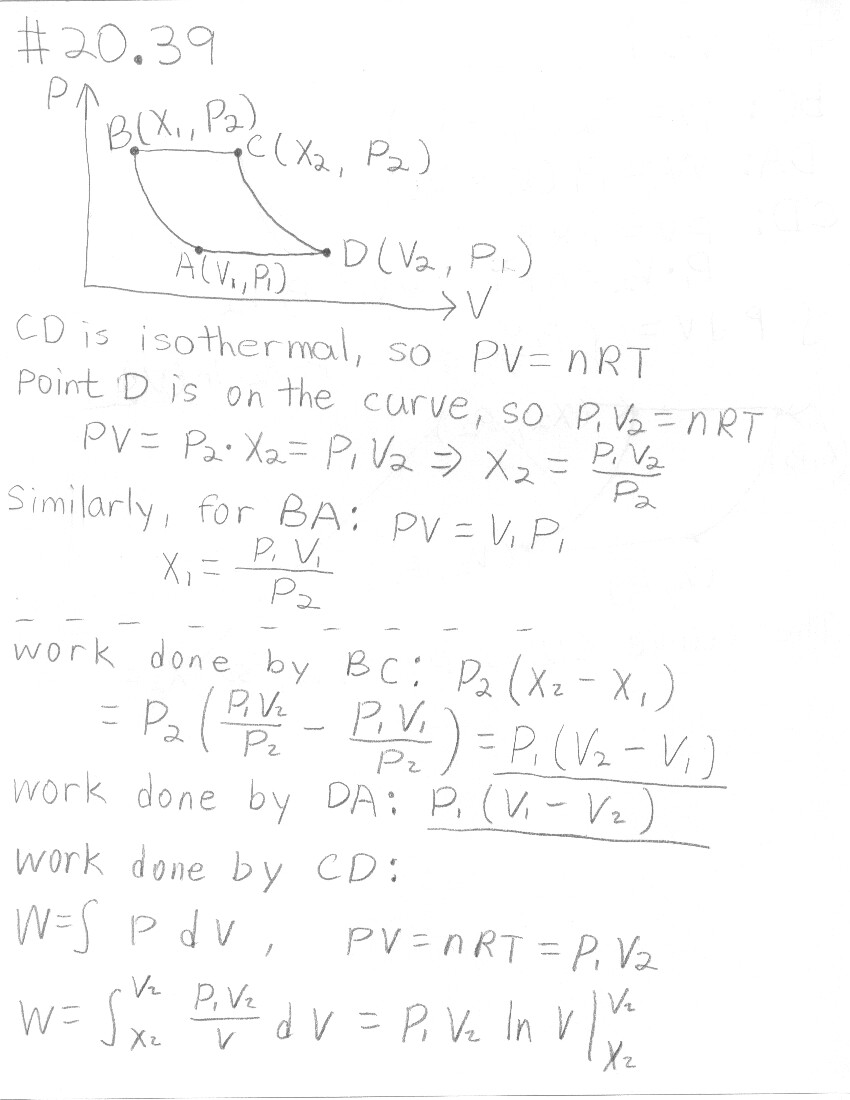 #20.39
P
B(X₁, P₂)
C(X₂, P₂)
A(V₁, P₁)
D(V₂, P₁)
V
CD is isothermal, so PV = nRT
Point D is on the curve, so P₁V₂ = nRT
PV = P₂·X₂ = P₁V₂ ⇒ X₂ = P₁V₂/P₂
Similarly, for BA: PV = V₁P₁
X₁ = P₁V₁/P₂
work done by BC: P₂(X₂ − X₁)
= P₂(P₁V₂/P₂ − P₁V₁/P₂) = P₁(V₂ − V₁)
work done by DA: P₁(V₁ − V₂)
work done by CD:
W=∫ P dV, PV = nRT = P₁V₂
W= ∫_{X₂}^{V₂} P₁V₂/V dV = P₁V₂ ln V |_{X₂}^{V₂}